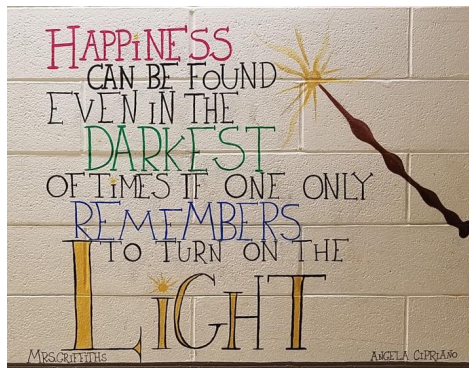 HAPPiNESS
CAN BE FOUND
EVEN IN THE
DARKEST
OF TiMES IF ONE ONLY
REMEMBERS
TO TURN ON THE
LiGHT
MRS.GRIFFITHS
ANGELA CIPRIANO